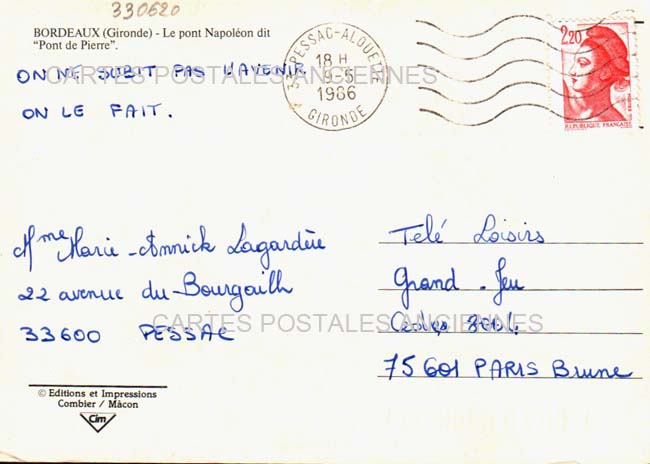 330620
BORDEAUX (Gironde) - Le pont Napoléon dit
"Pont de Pierre".
ON NE SUBIT PAS L'AVENIR
ON LE FAIT.
PESSAC-ALOUETTE
18 H
9-5
1986
GIRONDE
2,20
REPUBLIQUE FRANÇAISE
CARTES POSTALES ANCIENNES
Mme Marie-Annick Lagardère
22 avenue du Bourgailh
33600 PESSAC
Telé Loisirs
Grand Jeu
Cedex
75601 PARIS Brune
CARTES POSTALES ANCIENNES
© Editions et Impressions
Combier / Mâcon
Cim